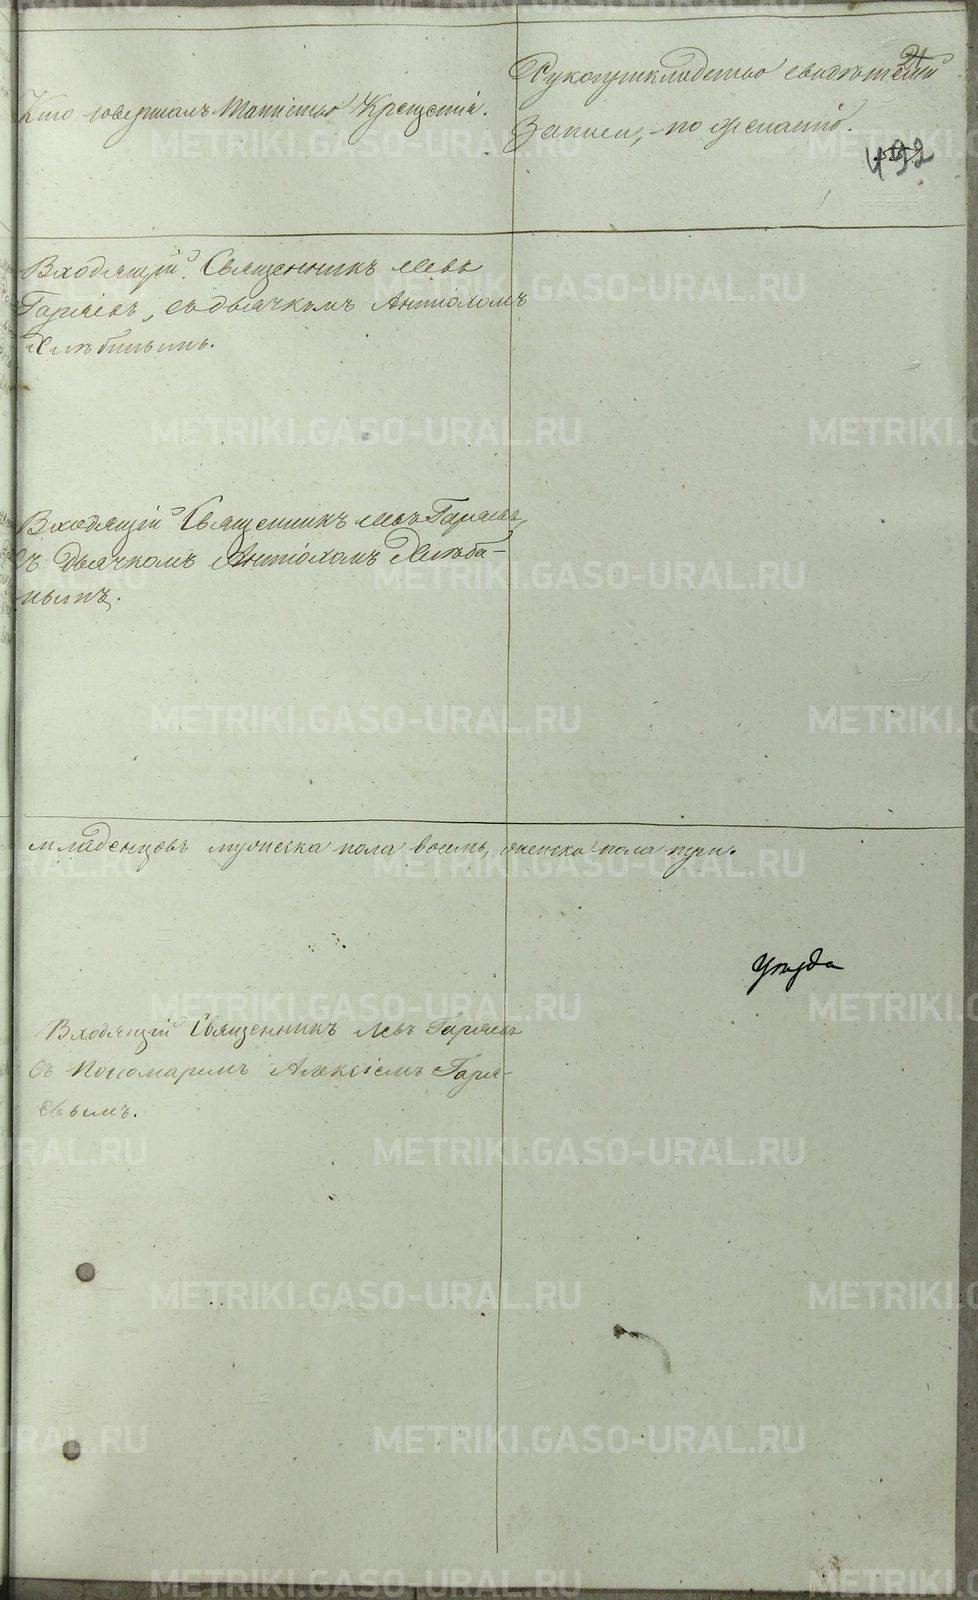 Кто совершалъ Таинство Крещенія.
Рукоприкладство свидѣтелей
записи, по желанію.
21
492
Входящій Священникъ Левъ
Гаряевъ, съ дьячкомъ Антіохомъ
Хлѣбинымъ.
Входящій Священникъ Левъ Гаряевъ,
съ дьячкомъ Антіохомъ Хлѣби-
нымъ.
младенцовъ мужеска пола восемь, женска пола три.
Входящій Священникъ Левъ Гаряевъ
съ Пономаремъ Алексіемъ Гаря-
евымъ.
METRIKI.GASO-URAL.RU